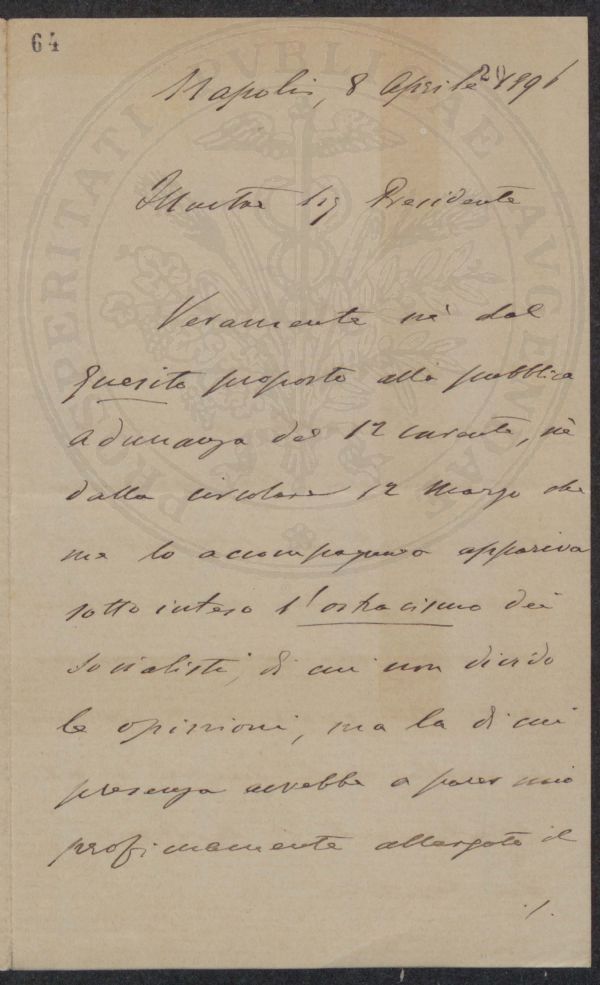 64
Napoli, 8 Aprile 1896
20
Illustre Sig Presidente
Veramente nè dal
Quesito proposto alla pubblica
adunanza del 12 corrente, nè
dalla circolare 12 Marzo che
me lo accompagnava appariva
sotto inteso l'ostracismo dei
socialisti, di cui non divido
le opinioni, ma la di cui
presenza avrebbe a parer mio
proficuamente allargato il
./.
PROSPERITATI PVBLICAE AVGENDAE